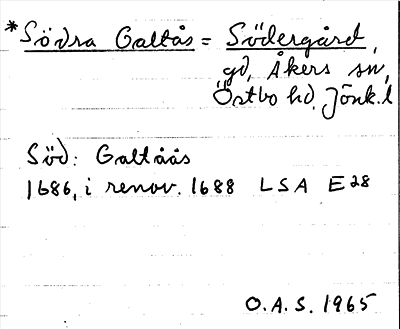 *Södra Galtås = Södergård,
gd, Åkers sn,
Östbo hd. Jönk. l
Söd: Galtåås
1686, i renov. 1688 LSA E28
O.A.S. 1965